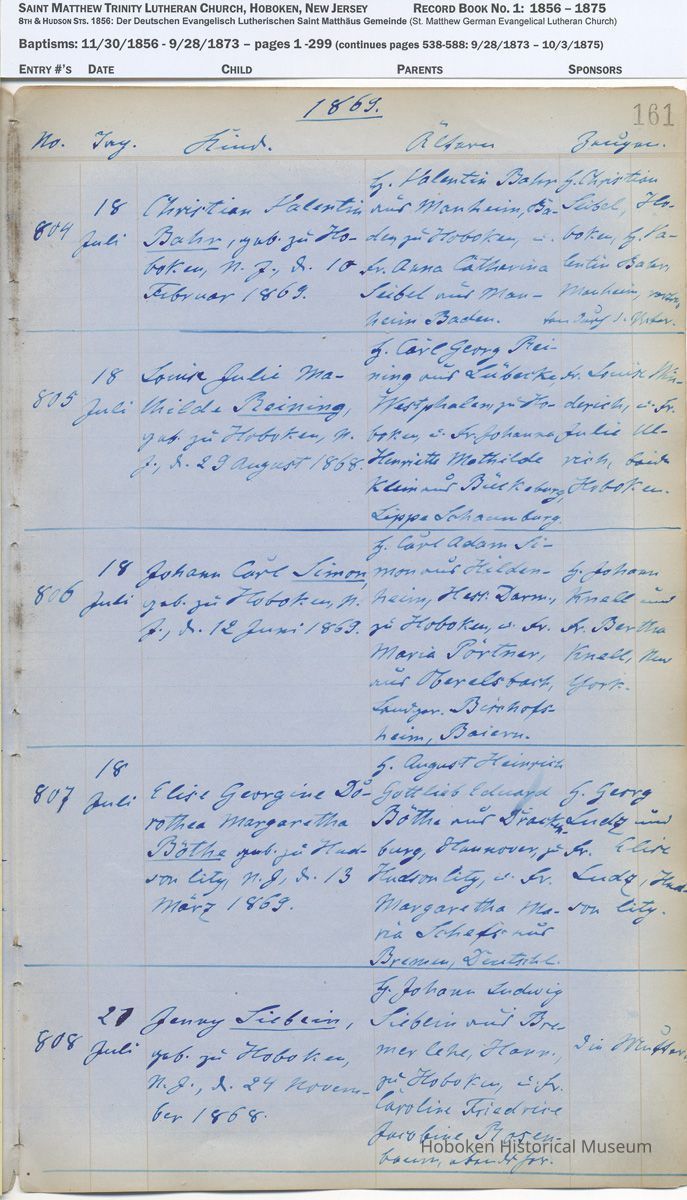 SAINT MATTHEW TRINITY LUTHERAN CHURCH, HOBOKEN, NEW JERSEY RECORD BOOK NO. 1: 1856 – 1875
8TH & HUDSON STS. 1856: Der Deutschen Evangelisch Lutherischen Saint Matthäus Gemeinde (St. Matthew German Evangelical Lutheran Church)
Baptisms: 11/30/1856 - 9/28/1873 – pages 1 -299 (continues pages 538-588: 9/28/1873 – 10/3/1875)
ENTRY #'S DATE CHILD PARENTS SPONSORS
1869.
161
No. Tag. Kind. Ältern Zeugen.
804
18
Juli
Christian Valentin
Bahr, geb. zu Ho-
boken, N. J., d. 10
Februar 1869.
H. Valentin Bahr
aus Manheim, Ba-
den zu Hoboken, u.
Fr. Anna Catharina
Seibel aus Man-
heim Baden.
H. Christian
Seibel, Ho-
boken, H. Va-
lentin Bahr,
Manheim,
805
18
Juli
Louise Julie Ma-
thilde Reining,
geb. zu Hoboken, N.
J., d. 29 August 1868.
H. Carl Georg Rei-
ning aus Lübecke,
Westphalen, zu Ho-
boken, u. Fr. Johanna
Henriette Mathilde
Klein aus Bückeburg,
Lippe Schaumburg.
Fr. Louise
derich, u. Fr.
Julie Ul-
rich, beide
Hoboken.
806
18
Juli
Johann Carl Simon
geb. zu Hoboken, N.
J., d. 12 Juni 1869.
H. Carl Adam Si-
mon aus Hilden-
heim, Hess. Darm.,
zu Hoboken, u. Fr.
Maria Pörtner,
aus Oberelsbach,
Landger. Bischofs-
heim, Baiern.
H. Johann
Knell und
Fr. Bertha
Knell, New
York.
807
18
Juli
Elise Georgine Do-
rothea Margaretha
Böthe geb. zu Hud-
son City, N. J., d. 13
März 1869.
H. August Heinrich
Gottlieb Eduard
Böthe aus
burg, Hannover, zu
Hudson City, u. Fr.
Margaretha Ma-
ria aus
Bremen, Deutschl.
H. Georg
Ludz und
Fr. Elise
Ludz, Hud-
son City.
808
21
Juli
Jenny Siebein,
geb. zu Hoboken,
N. J., d. 24 Novem-
ber 1868.
H. Johann Ludwig
Siebein aus Bre-
merlehe, Hann.,
zu Hoboken, u. Fr.
Caroline Friedrice
Jacobine Rosen-
baum,
Die Mutter.
Hoboken Historical Museum